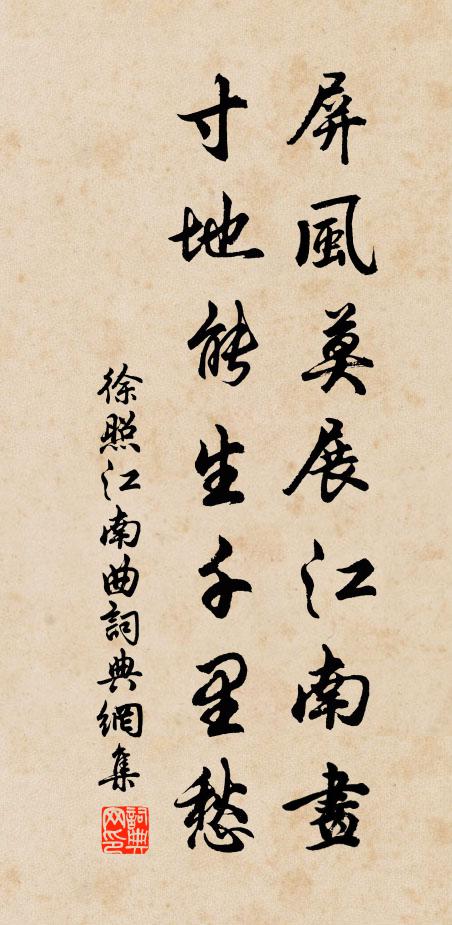 屏風莫展江南畫
寸地能生千里愁
徐照江南曲詞典網集
詞典網印